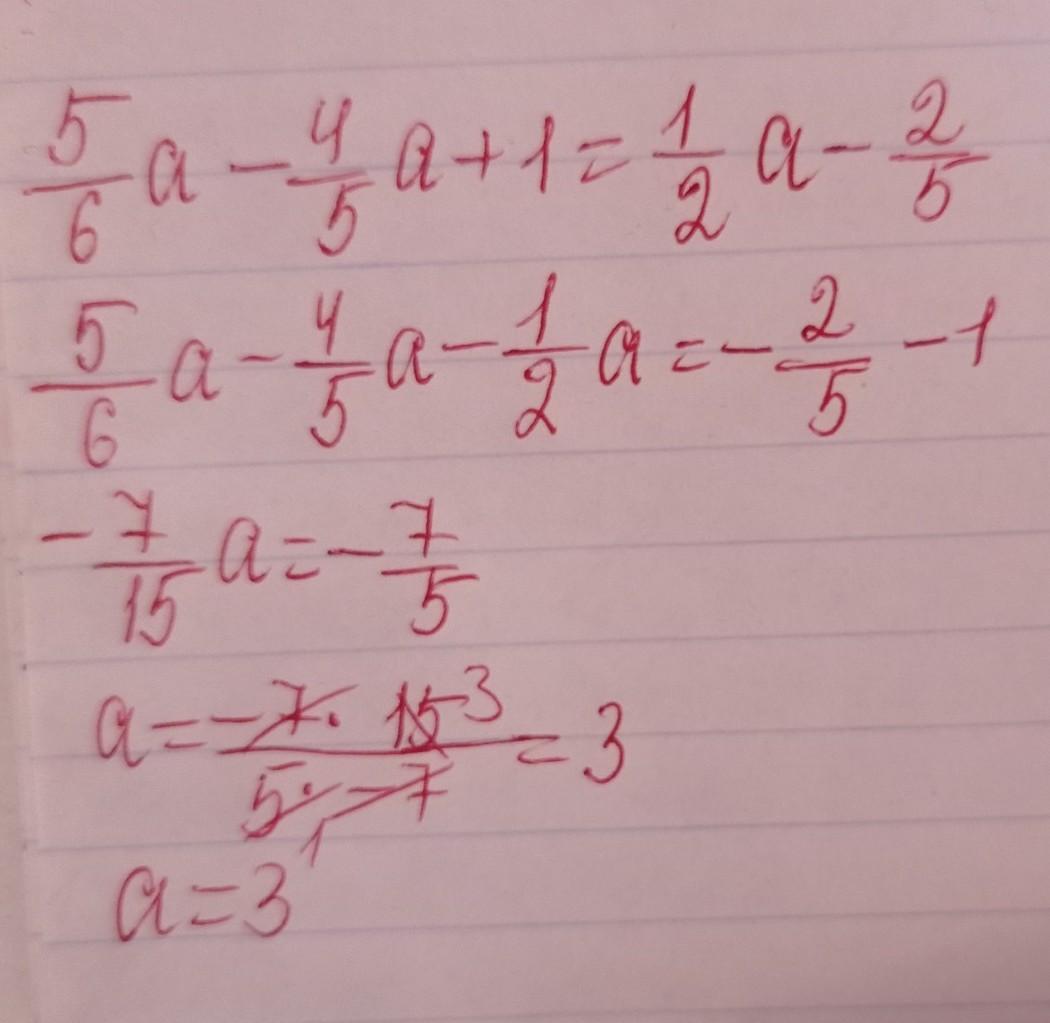 5/6 a - 4/5 a + 1 = 1/2 a - 2/5
5/6 a - 4/5 a - 1/2 a = - 2/5 - 1
- 7/15 a = - 7/5
a = (-7 · 15 3)/(5 · -7 1) = 3
a = 3